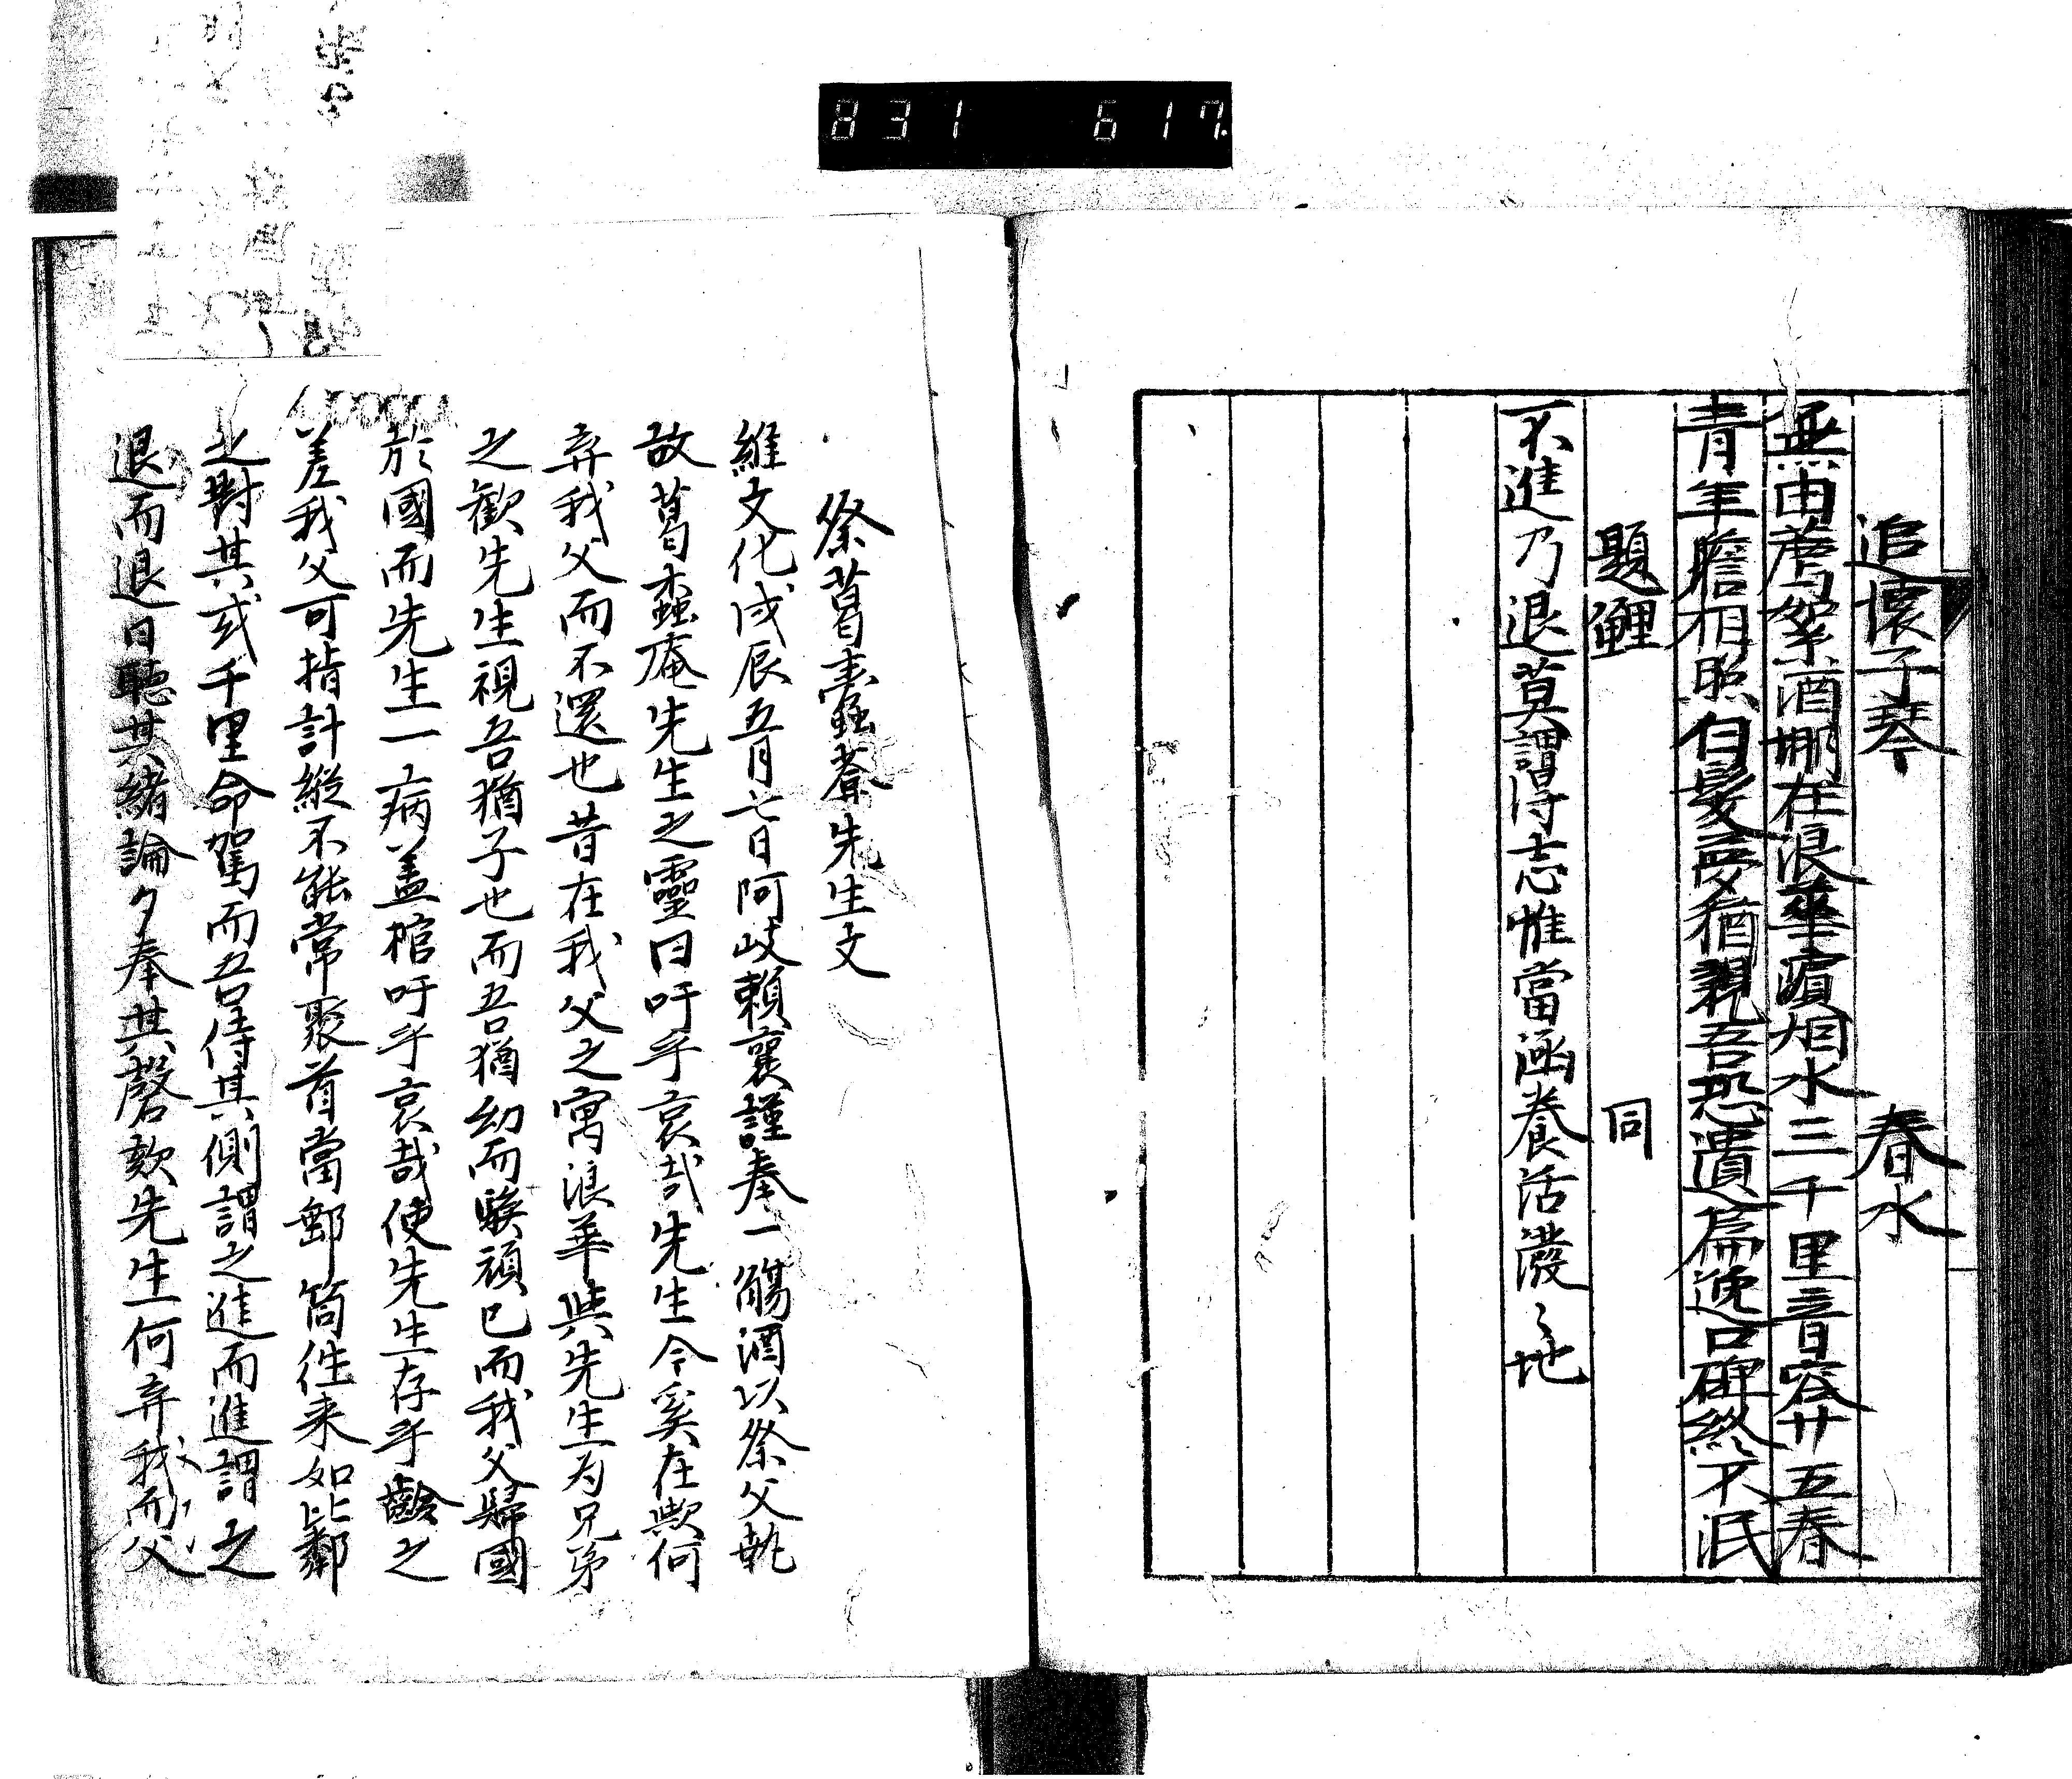 831 617
追懐子琴 春水
無由薦絮酒墳在浪華濱烟水三千里音容廿五春
青年膽相照白髪夢猶親吾恐遺篇逸口碑終不泯
題鯉 同
不進乃退莫謂得志惟當涵養活潑〻地
祭葛蠧菴先生文
維文化戊辰五月七日阿岐頼襄謹奉一觴酒以祭父執
故葛蠹庵先生之靈曰吁乎哀哉先生今奚在歟何
弃我父而不還也昔在我父之寓浪華與先生为兄弟
之歡先生視吾猶子也而吾猶幼而騃頑已而我父歸國
於國而先生一病盖棺吁乎哀哉使先生存乎齡之
差我父可指計縦不能常聚首當郵筒往来如比鄰
之對其或千里命駕而吾侍其側謂之進而進謂之
退而退日聽其緒論夕奉其謦欬先生何弃我父而